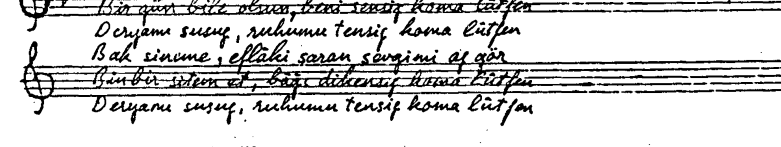 Bir gün bile olsun, beni sensiz koma lütfen
Deryamı susuz, ruhumu tensiz koma lütfen
Bak sineme, eflâki saran sevgimi aç gör
Binbir sitem et, bâğı dikensiz koma lütfen
Deryamı susuz, ruhumu tensiz koma lütfen